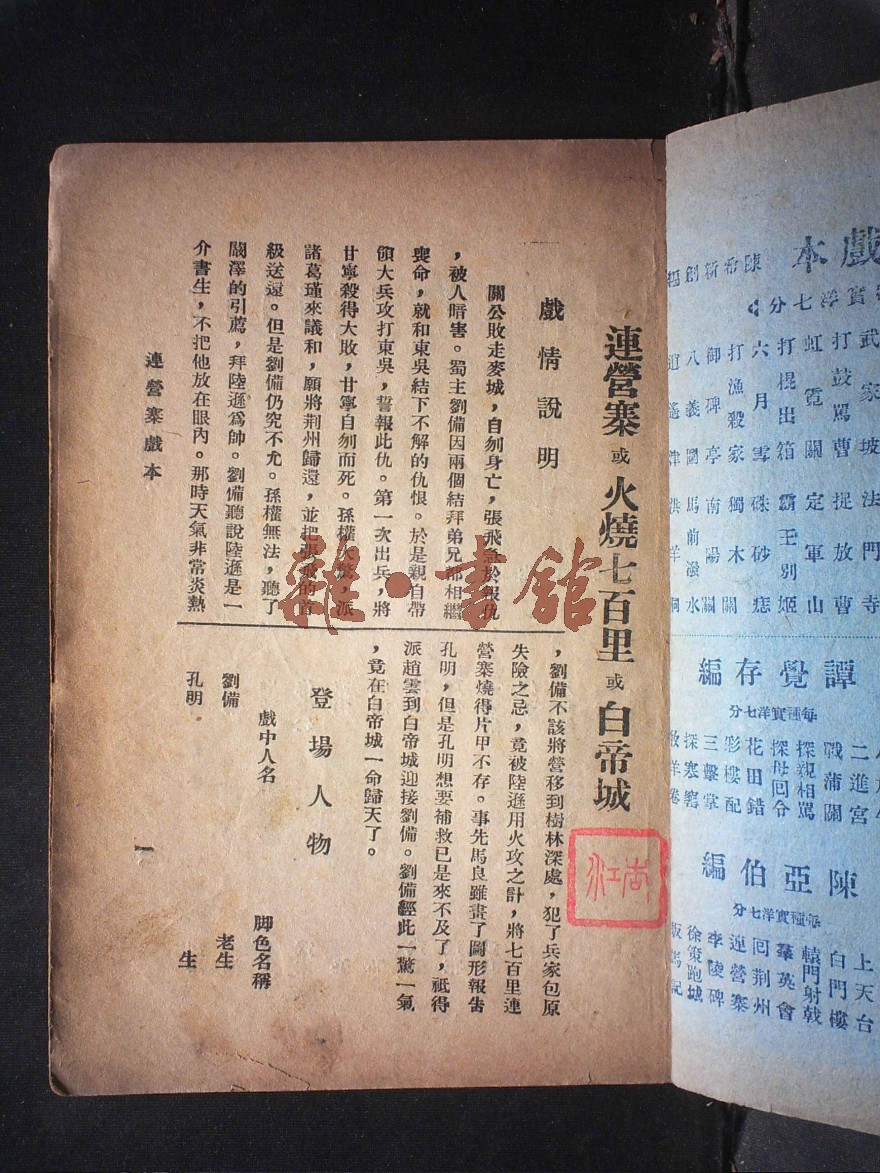 戲本
陳希新創編
實洋七分
武家坡 法門寺
打鼓罵曹 捉放曹
虹霓關 定軍山
打棍出箱 霸王別姬
六月雪 硃砂痣
打漁殺家 獨木關
御碑亭 南陽關
八義圖 馬前潑水
逍遙津 洪羊洞
譚覺存編
每種實洋七分
二進宮
戰蒲關
探親相罵
探母回令
花田錯
彩樓配
三擊掌
探寒窰
牧羊卷
陳亞伯編
每種實洋七分
上天台
白門樓
轅門射戟
羣英會
回荆州
連營寨
李陵碑
徐策跑城
連營寨 或 火燒七百里 或 白帝城
戲情說明
關公敗走麥城,自刎身亡,張飛急於報仇
,被人暗害。蜀主劉備因兩個結拜弟兄都相繼
喪命,就和東吳結下不解的仇恨。於是親自帶
領大兵攻打東吳,誓報此仇。第一次出兵,將
甘寧殺得大敗,甘寧自刎而死。孫權大驚,派
諸葛瑾來議和,願將荆州歸還,並把張飛的首
級送還。但是劉備仍究不允。孫權無法,聽了
闞澤的引薦,拜陸遜爲帥。劉備聽說陸遜是一
介書生,不把他放在眼內。那時天氣非常炎熱
,劉備不該將營移到樹林深處,犯了兵家包原
失險之忌,竟被陸遜用火攻之計,將七百里連
營寨燒得片甲不存。事先馬良雖畫了圖形報告
孔明,但是孔明想要補救已是來不及了,祇得
派趙雲到白帝城迎接劉備。劉備經此一驚一氣
,竟在白帝城一命歸天了。
登場人物
戲中人名 脚色名稱
劉備 老生
孔明 生
連營寨戲本
一
雜·書館